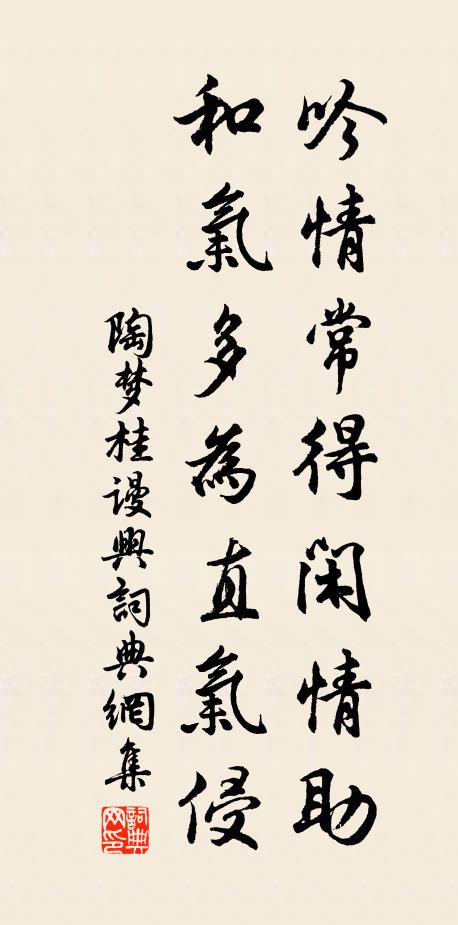 吟情常得閑情助
和氣多為直氣侵
陶梦桂謾興詞典網集
詞典网印